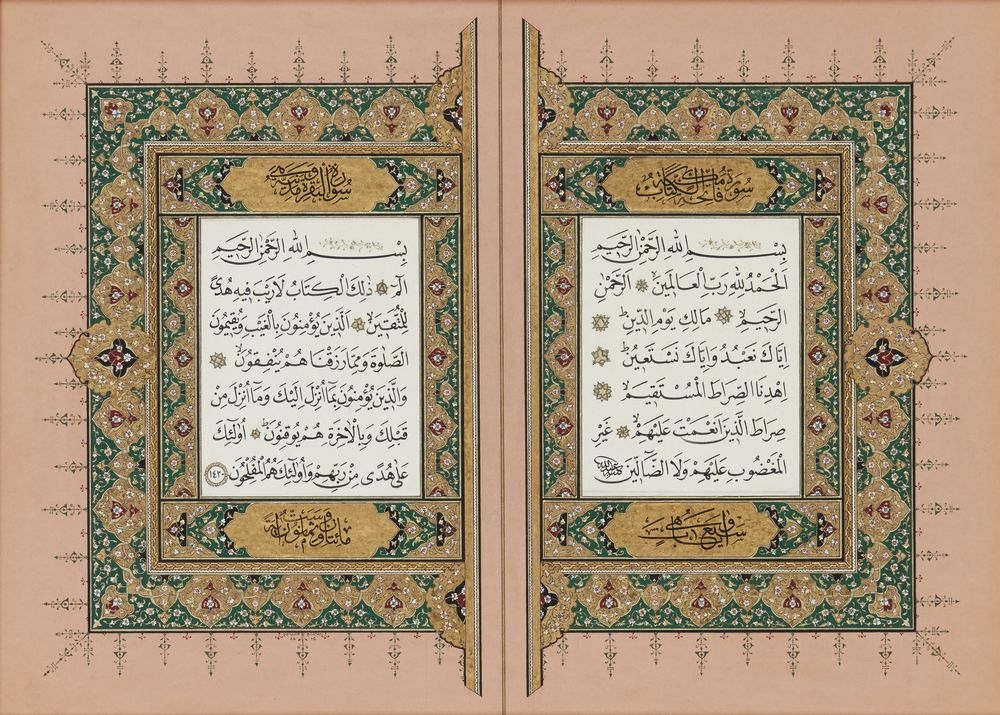 سُورَةُ فَاتِحَةِ الْكِتَابِ
بِسْمِ اللهِ الرَّحْمٰنِ الرَّحيمِ
اَلْحَمْدُ لِلّٰهِ رَبِّ الْعَالَمينَ اَلرَّحْمٰنِ
الرَّحيمِ مَالِكِ يَوْمِ الدّينِ
اِيَّاكَ نَعْبُدُ وَاِيَّاكَ نَسْتَعينُ
اِهْدِنَا الصِّرَاطَ الْمُسْتَقيمَ
صِرَاطَ الَّذينَ اَنْعَمْتَ عَلَيْهِمْ غَيْرِ
الْمَغْضُوبِ عَلَيْهِمْ وَلَا الضَّالّينَ
وهي سبع آيات
سُورَةُ الْبَقَرَةِ مَدَنِيَّةٌ وَهِيَ
بِسْمِ اللهِ الرَّحْمٰنِ الرَّحيمِ
الٓمٓ ذٰلِكَ الْكِتَابُ لَا رَيْبَ فيهِ هُدًى
لِلْمُتَّقينَ اَلَّذينَ يُؤْمِنُونَ بِالْغَيْبِ وَيُقيمُونَ
الصَّلٰوةَ وَمِمَّا رَزَقْنَاهُمْ يُنْفِقُونَ
وَالَّذينَ يُؤْمِنُونَ بِمَٓا اُنْزِلَ اِلَيْكَ وَمَٓا اُنْزِلَ مِنْ
قَبْلِكَ وَبِالْاٰخِرَةِ هُمْ يُوقِنُونَ اُولٰٓئِكَ
عَلٰى هُدًى مِنْ رَبِّهِمْ وَاُولٰٓئِكَ هُمُ الْمُفْلِحُونَ ١٤٢٠
مائتان وست وثمانون آية